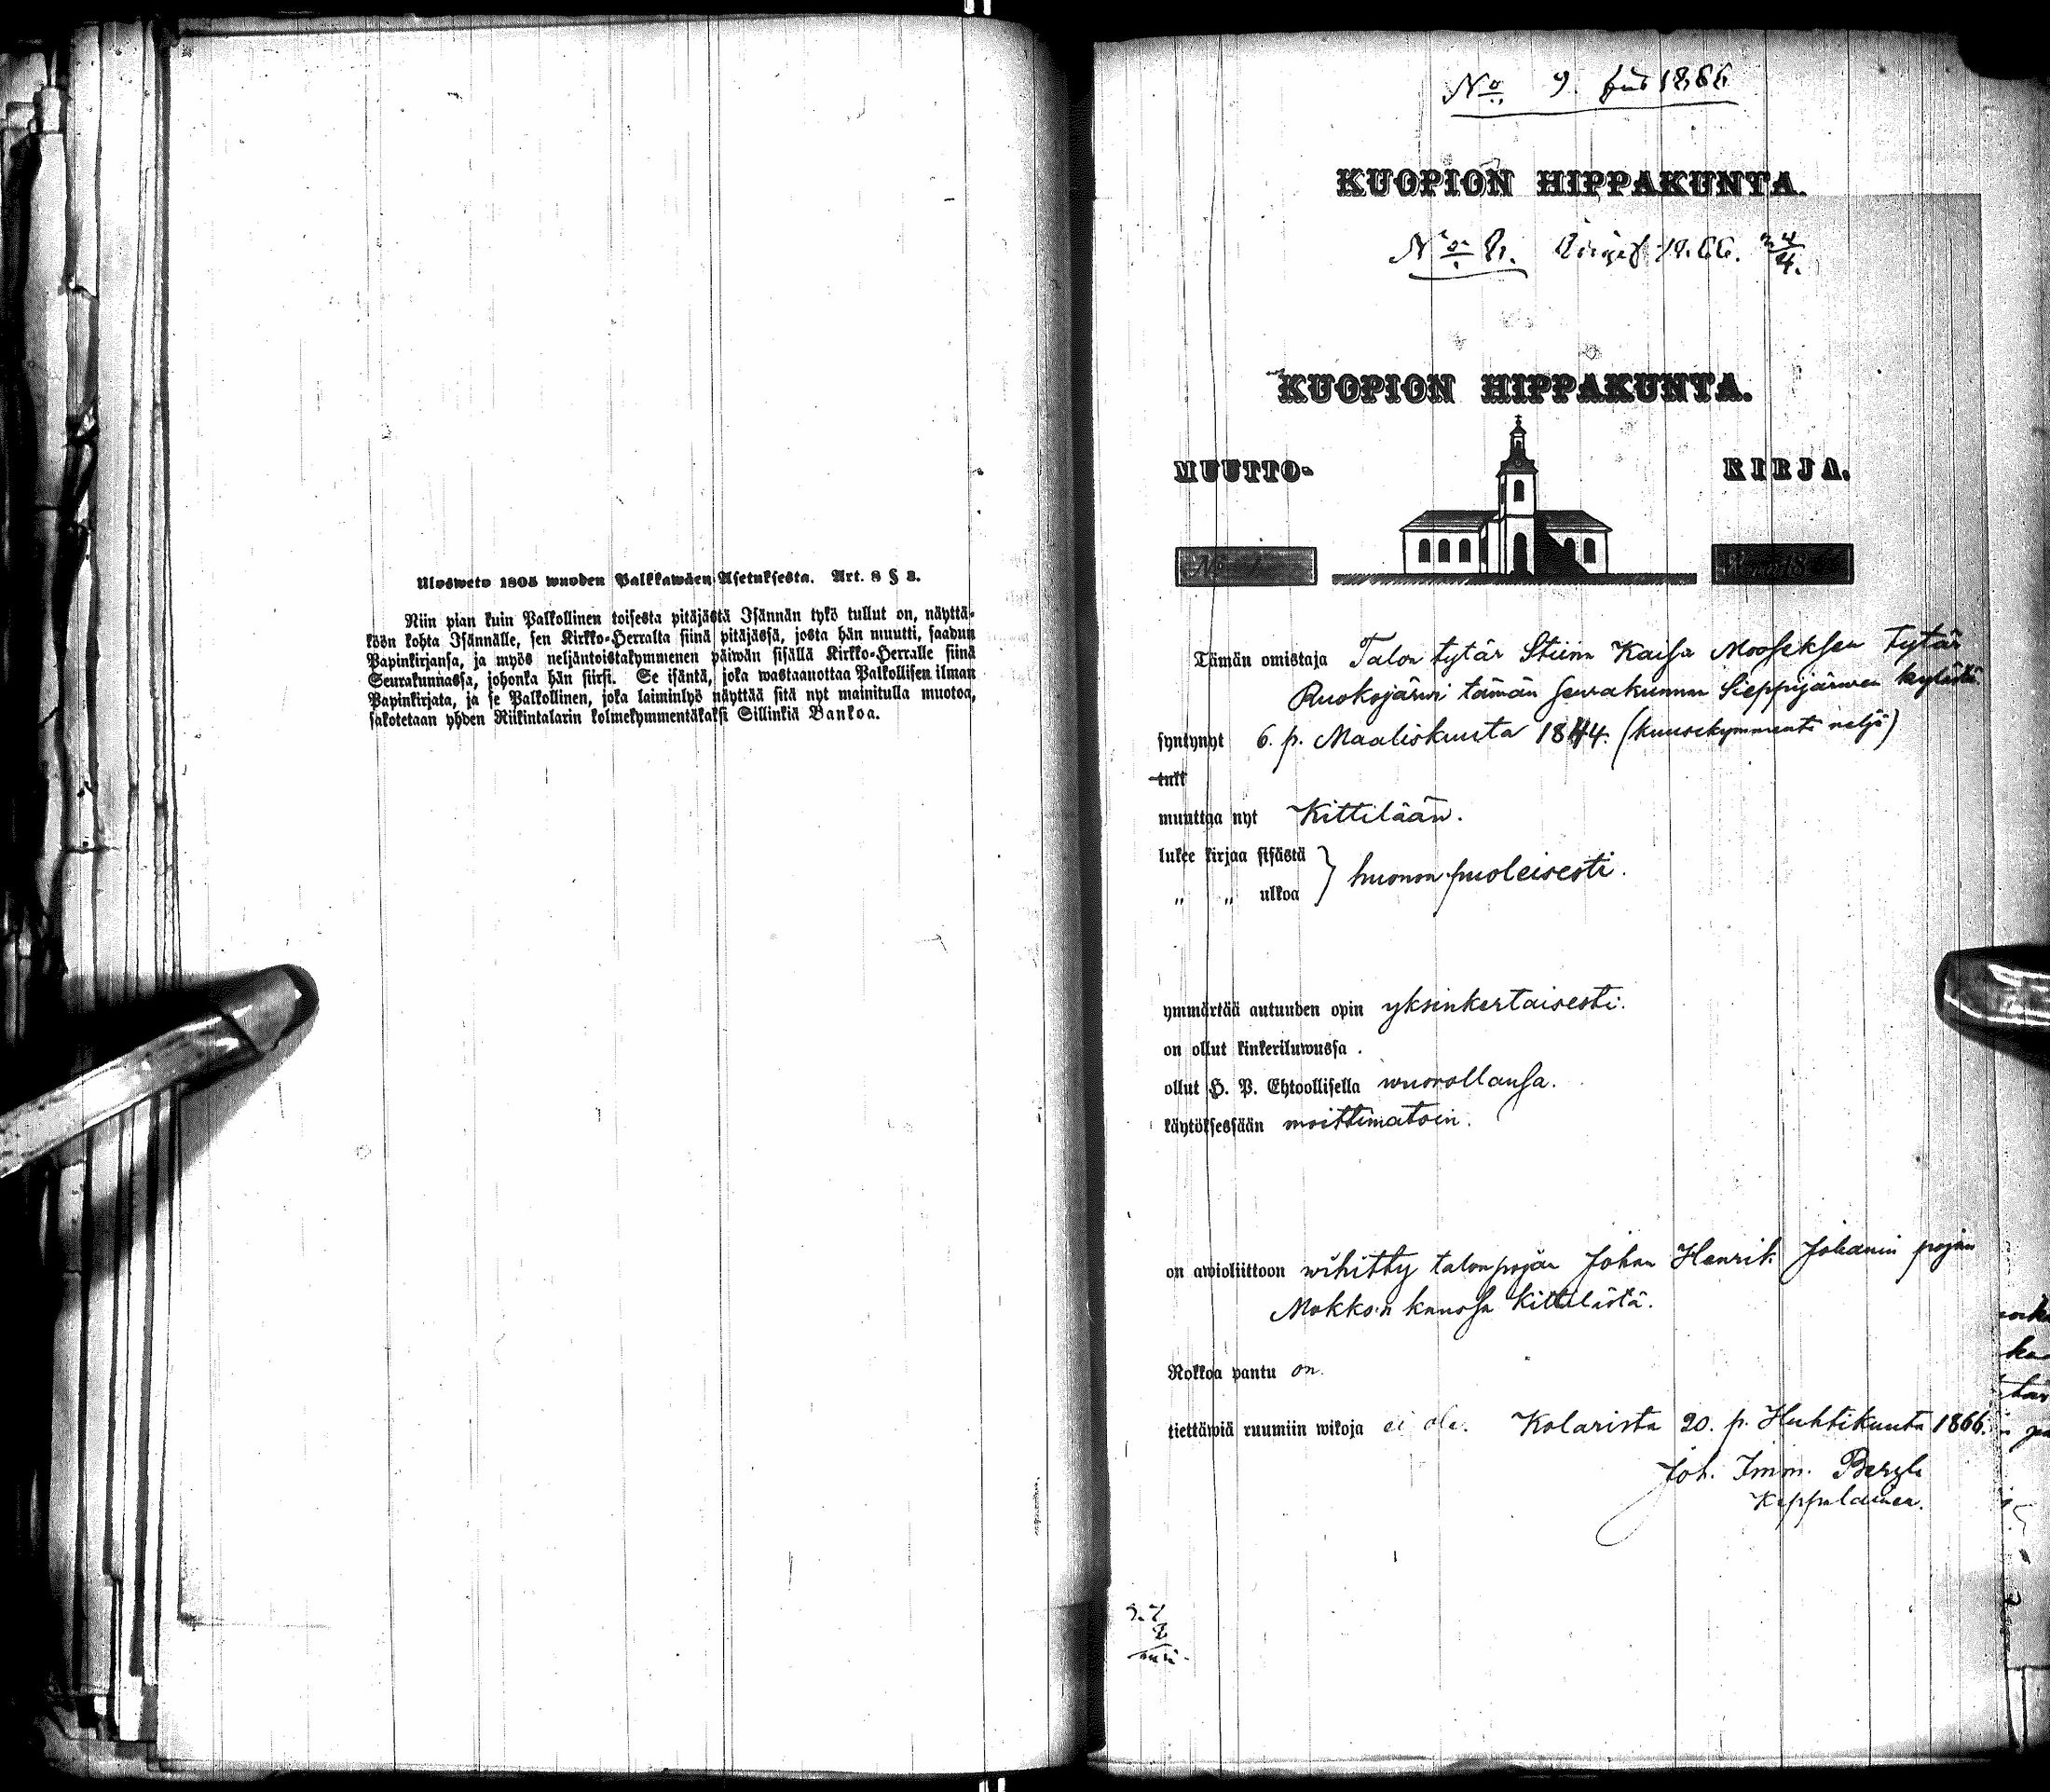 Ulosweto 1805 wuoden Palkkawäen Asetuksesta. Art. 8 § 3.
Niin pian kuin Palkollinen toisesta pitäjästä Isännän tykö tullut on, näyttä-
köön kohta Isännälle, sen Kirkko-Herralta siinä pitäjässä, josta hän muutti, saadun
Papinkirjansa, ja myös neljäntoistakymmenen päiwän sisällä Kirkko-Herralle siinä
Seurakunnassa, johonka hän siirsi. Se isäntä, joka wastaanottaa Palkollisen ilman
Papinkirjata, ja se Palkollinen, joka laiminlyö näyttää sitä nyt mainitulla muotoa,
sakotetaan yhden Riikintalarin kolmekymmentäkaksi Sillinkiä Bankoa.
No 9. 1866
KUOPION HIPPAKUNTA.
No 1866.
KUOPION HIPPAKUNTA.
MUUTTO- KIRJA.
No
Tämän omistaja Talon tytär Stiina Kaisa Mooseksen Tytär
Ruokojärwi tämän seurakunnan Sieppijärwen kylästä
syntynyt 6. p. Maaliskuuta 1844. (kuusekymmentä neljä)
tuli
muuttaa nyt Kittilään.
lukee kirjaa sisästä
„ „ ulkoa } huonon puoleisesti.
ymmärtää autuuden opin yksinkertaisesti.
on ollut kinkeriluwussa.
ollut H. P. Ehtoollisella wuorollansa.
käytöksessään moittimatoin.
on awioliittoon wihitty talonpojan Johan Henrik Johanin pojan
Mokko:n kanssa Kittilästä.
Rokkoa pantu on.
tiettäwiä ruumiin wikoja ei ole. Kolarista 20. p. Huhtikuuta 1866.
Joh. Imm. Bergh
Kappalainen.